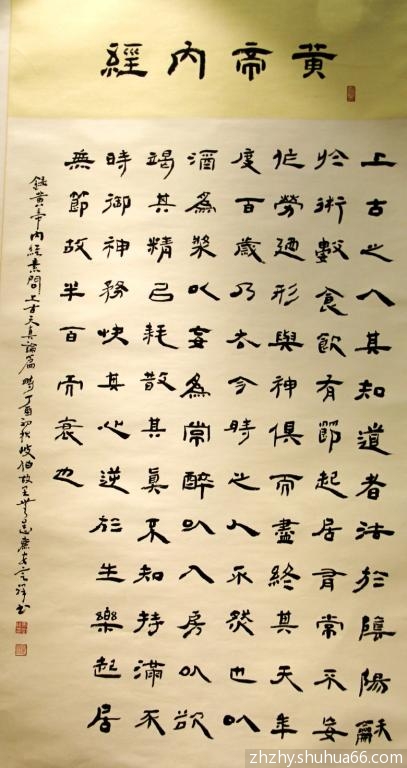 黄帝内經
上古之人其知道者法於陰陽龢
於術數食飲有節起居有常不妄
作勞廼形與神俱而盡終其天年
度百歲乃去今時之人不然也以
酒為漿以妄為常醉以入房以欲
竭其精以耗散其眞不知持滿不
時御神務快其心逆於生樂起居
無節故半百而衰也
錄黄帝内經素問上古天真論篇 時丁酉初秋岐伯故里
zhzhy.shuhua66.com